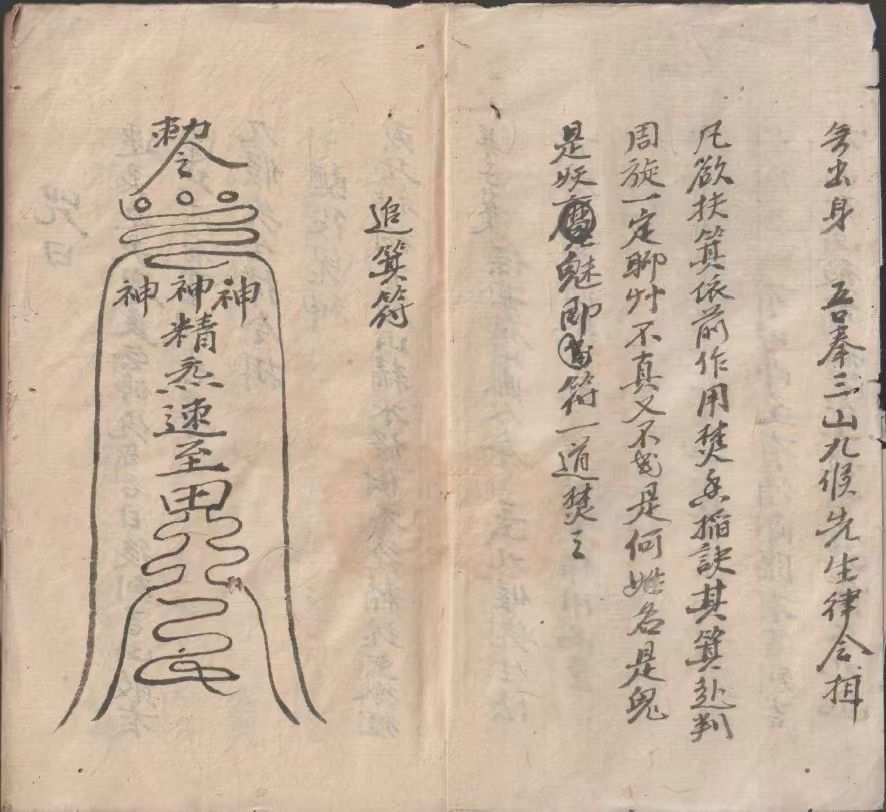 舍出身　吾奉三山九候先生律令揖
凡欲扶箕依前作用焚香掐訣其箕赴判
周旋一定聊艸不真又不書是何姓名是鬼
是妖魔魅即書符一道焚之
追箕符
勅令
神神神
精炁速至